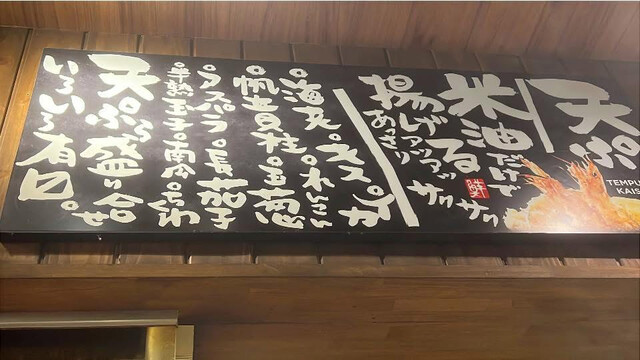 天ぷ
TEMPU
KAIS
米油だけで
揚げる
あっさり
アツアツ
サクサク
海老。キス。イカ
れんこん
帆立貝柱。玉葱
アスパラ。長茄子
半熟玉子
天ぷら盛り合せ。
いろいろ有口。